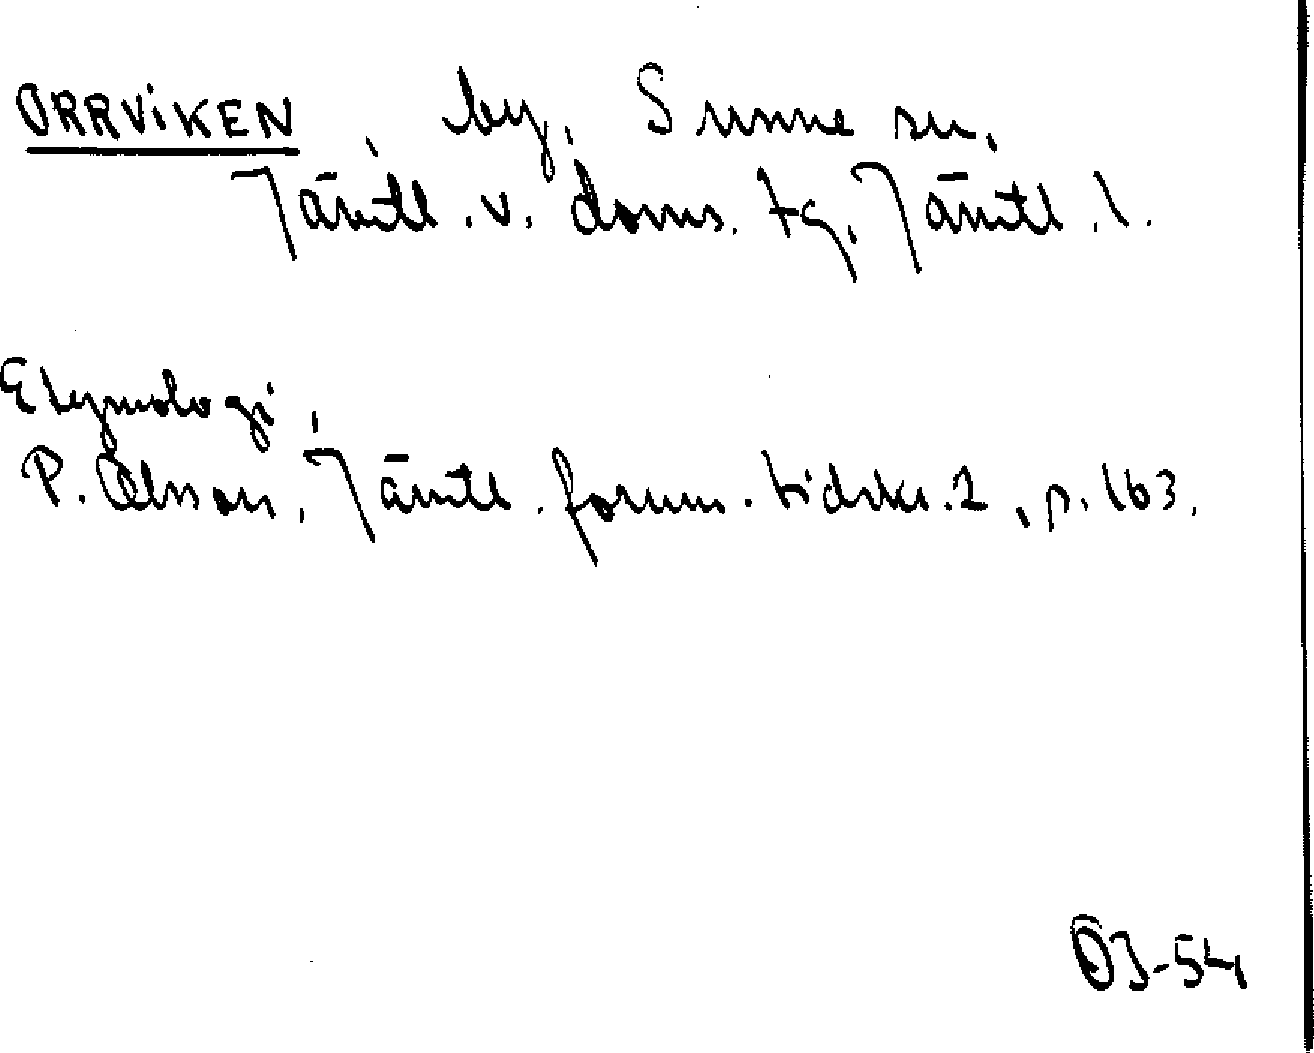 ORRVIKEN, by, Sunne sn,
Jämtl. v. doms. tg. Jämtl. l.
Etymologi,
P. Olsson, Jämtl. fornm. tidskr. 2, s. 163.
ÖJ-54